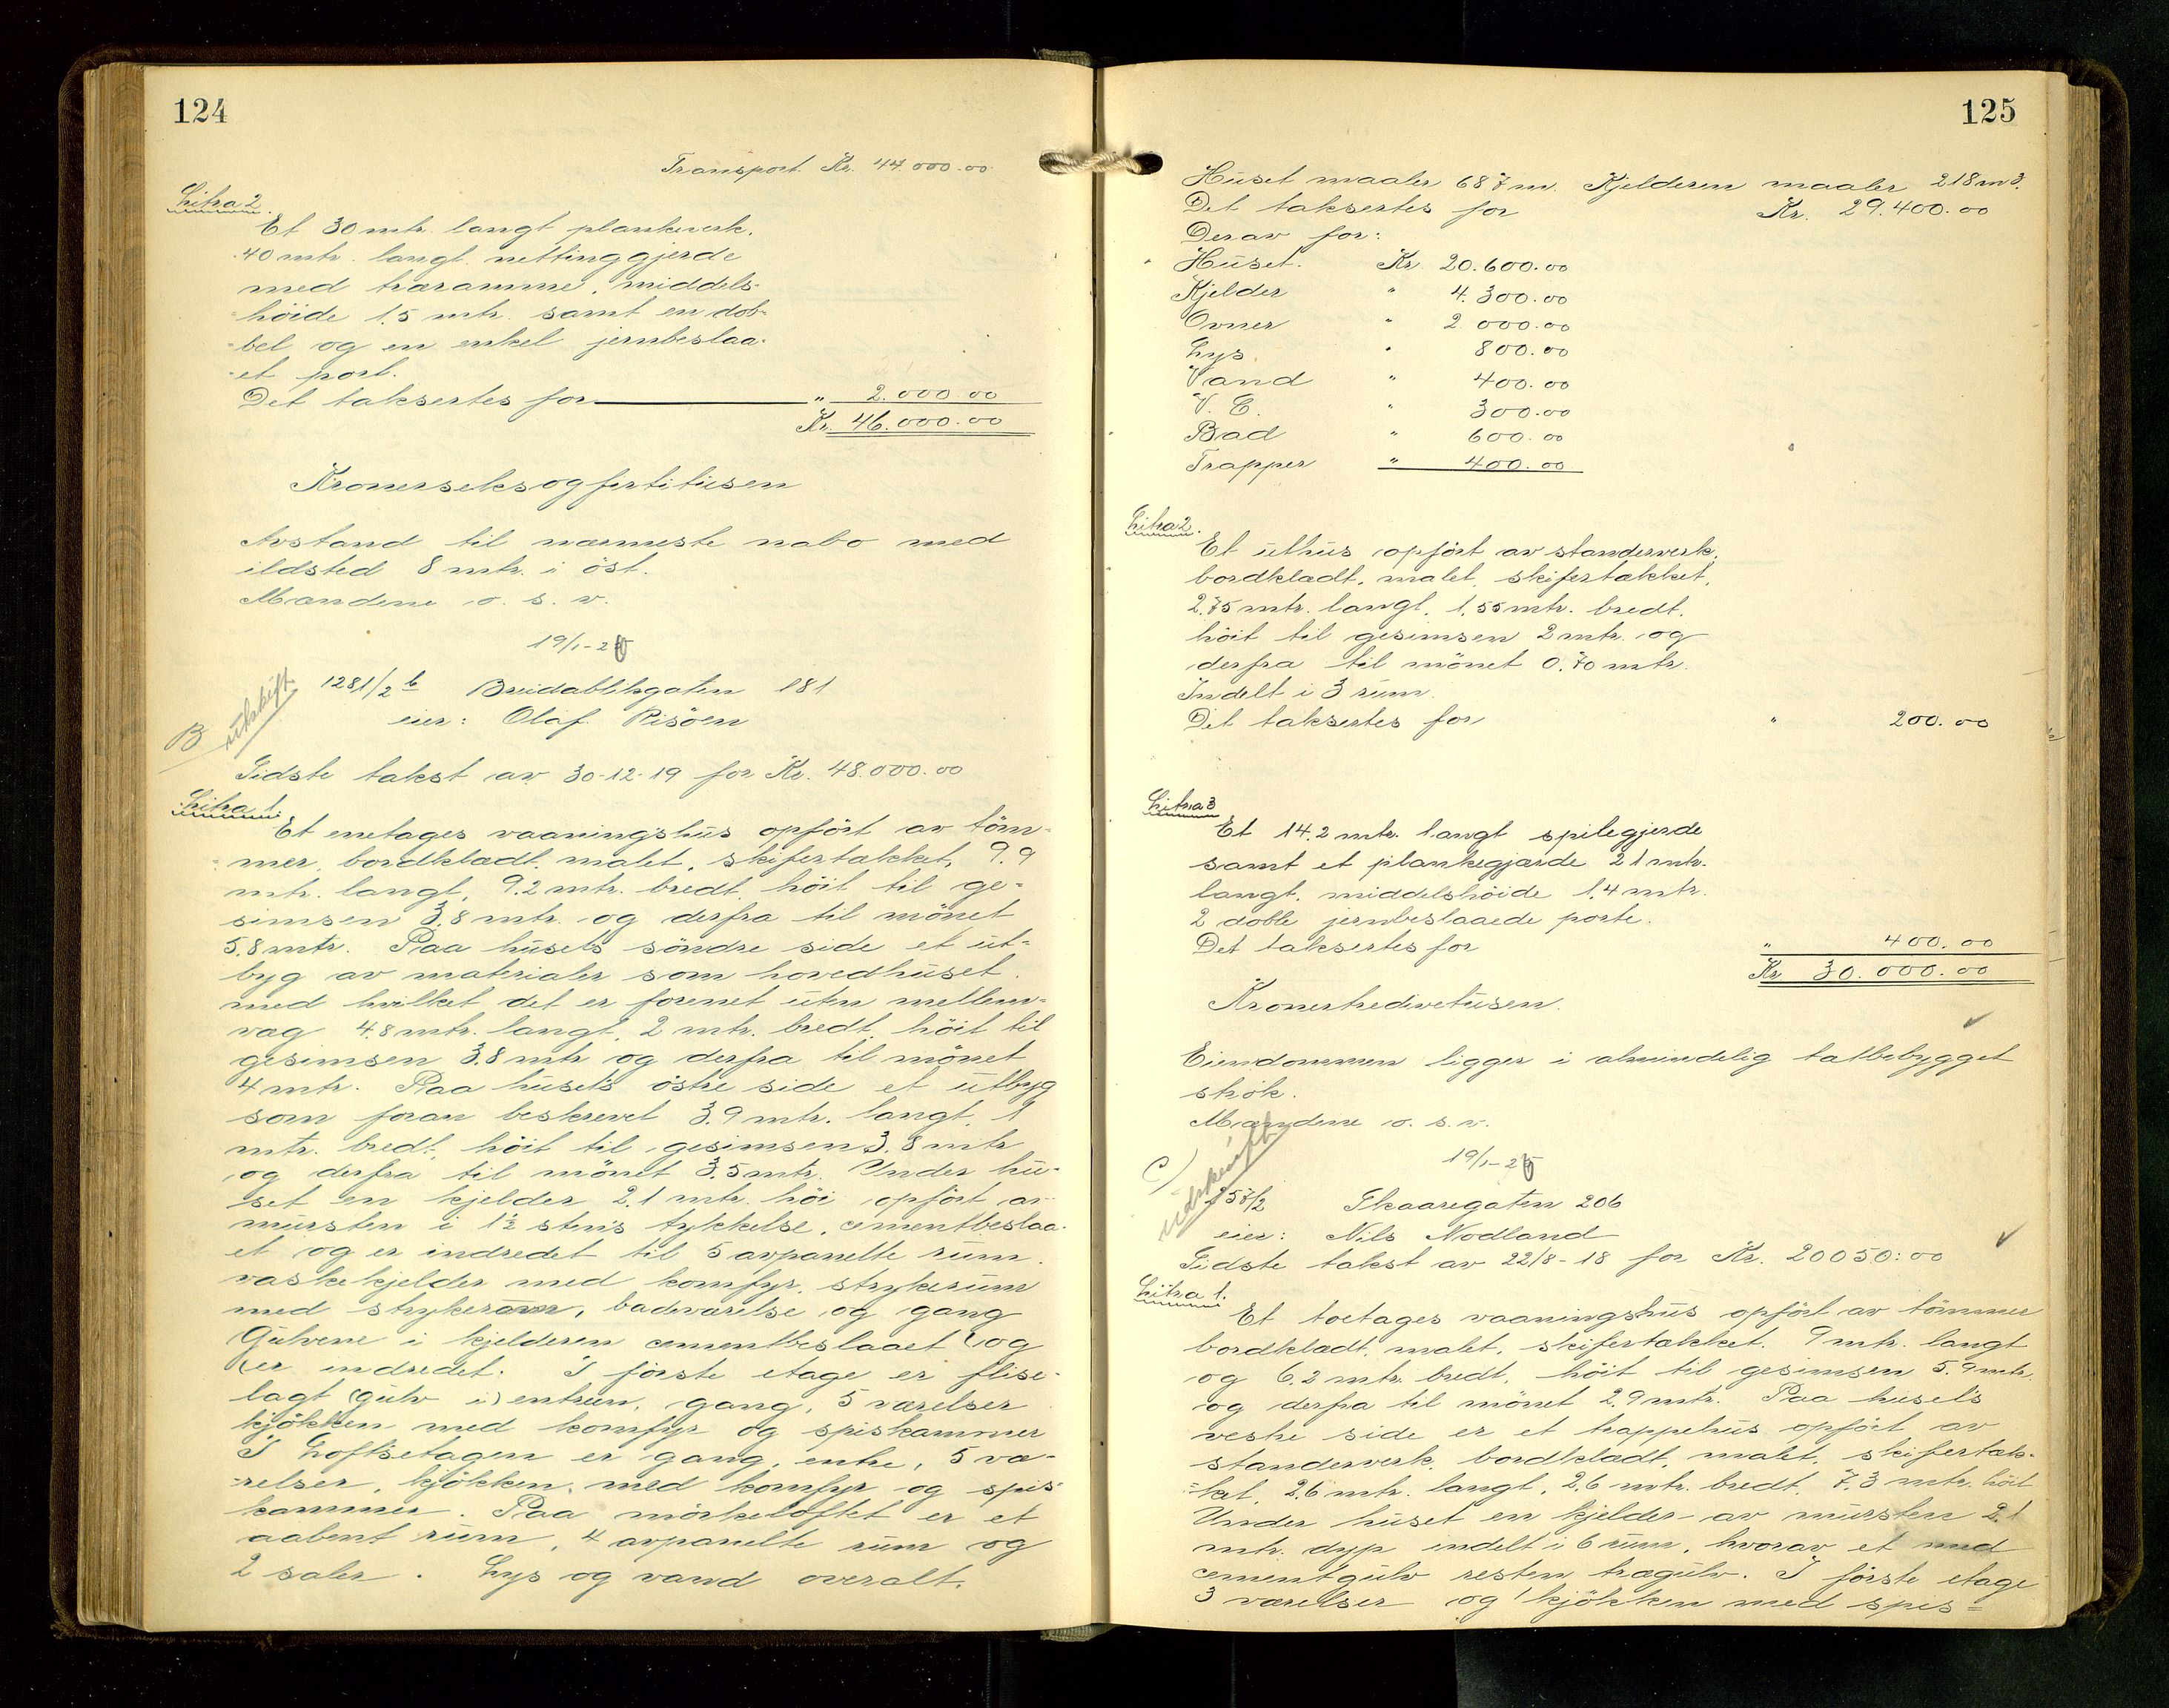 124
Transport Kr. 44.000.00
Litra 2.
Et 30 mtr. langt plankeverk.
40 mtr. langt nettinggjerde
med træramme, middels-
höide 1.5 mtr. samt en dob-
bel og en enkel jernbeslaa-
et port.
Det taksertes for " 2.000 00
Kr. 46.000.00
Kronerseksogfertitusen
Avstand til nærmeste nabo med
ildsted 8 mtr. i öst.
Mændene o. s. v.
19/1-26
B utskrift
1281/2 b Breidabliksgaten 181
eier: Olaf Risöen
Sidste takst av 30-12-19 for Kr. 48.000.00
Litra 1.
Et enetages vaaningshus opfört av töm-
mer, bordklædt, malet, skifertækket, 9.9
mtr. langt, 9.2 mtr. bredt, höit til ge-
simsen 3.8 mtr. og derfra til mönet
5.8 mtr. Paa husets söndre side et ut-
byg av materialer som hovedhuset
med hvilket det er forenet uten mellem-
væg 4.8 mtr. langt, 2 mtr. bredt, höit til
gesimsen 3.8 mtr og derfra til mönet
4 mtr. Paa husets östre side et utbyg
som foran beskrevet 3.9 mtr. langt, 1
mtr. bredt, höit til gesimsen 3.8 mtr
og derfra til mönet 3.5 mtr. Under hu-
set en kjelder 2.1 mtr. höi opfört av
mursten i 1½ stens tykkelse, cementbeslaa-
et og er indredet til 5 avpanelte rum.
vaskekjelder med komfyr, strykerum
med strykeravn, badeværelse og gang
Gulvene i kjelderen cementbeslaaet og
(er indredet. I förste etage er flise-
lagt (gulv i) entreen, gang, 5 værelser
kjökken med komfyr og spiskammer
I Loftsetagen er gang, entre, 5 væ-
-relser, kjökken, med komfyr og spis
kammer. Paa mörkeloftet er et
aabent rum, 4 avpanelte rum og
2 saler. Lys og vand overalt.
125
Huset maaler 687 m. Kjelderen maaler 218 m3.
Det taksertes for Kr. 29.400.00
Derav for:
Huset. Kr 20.600.00
Kjelder " 4.300.00
Ovner " 2.000.00
Lys " 800.00
Vand " 400.00
V. C. " 300.00
Bad " 600.00
Trapper " 400.00
Litra 2.
Et uthus opfört av standerverk,
bordklædt, malet, skifertækket,
2.75 mtr. langt, 1.55 mtr. bredt,
höit til gesimsen 2 mtr. og
derfra til mönet 0.70 mtr.
Indelt i 3 rum.
Det taksertes for " 200.00
Litra 3
Et 14.2 mtr. langt spilegjerde
samt et plankegjærde 21 mtr.
langt, middelshöide 1.4 mtr.
2 doble jernbeslaaede porte.
Det taksertes for " 400.00
Kr 30.000.00
Kronertredivetusen.
Eiendommen ligger i almindelig tætbebygget
strök.
Mændene o. s. v.
19/1-26
C) utskrift
257/2 Skaaregaten 206
eier: Nils Nodland
Sidste takst av 22/8-18 for Kr. 20050:00
Litra 1.
Et toetages vaaningshus opfört av tömmer
bordklædt, malet, skifertækket. 9 mtr. langt
og 6.2 mtr. bredt, höit til gesimsen 5.9 mtr.
og derfra til mönet 2.9 mtr. Paa husets
vestre side er et trappehus opfört av
standerverk, bordklædt, malet, skifertæk-
ket, 2.6 mtr. langt, 2.6 mtr. bredt, 7.3 mtr. höit
Under huset en kjelder av mursten 2.1
mtr. dyp indelt i 6 rum, hvorav et med
cementgulv resten trægulv. I förste etage
3 værelser og 1 kjökken med spis-